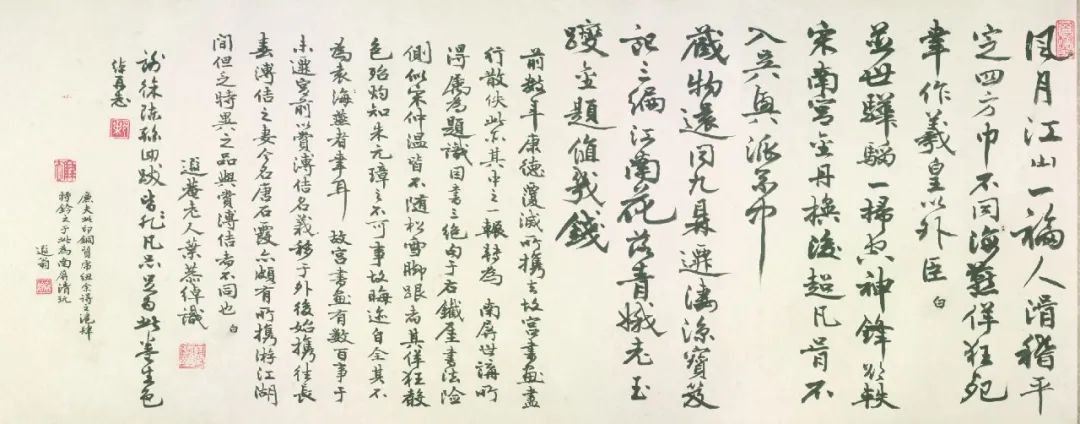 風月江山一福人滑稽平
定四方巾不同海叟佯狂死
聿作羲皇以外臣 白
並世驊騮一掃空神鋒欲軼
宋南宮金丹換後超凡骨不
入吳興派系中
藏物還同九鼎遷淒涼寶笈
記三編江南花落青娥老玉
躞金題值幾錢
前數年康德覆滅所攜去故宮書畫盡
行散佚此亦其中之一輾轉為 南屏世講所
得屬為題識因書三絕句于右鐵崖書法險
側似宋仲溫皆不隨松雪腳跟者其佯狂
色殆灼知朱元璋之不可事故晦迹自全其不
為袁海叟者幸耳 故宮書畫有數百事于
未遷宮前以賞溥佶名義移于外後始攜往長
春溥佶之妻今名唐石霞亦頗有所攜游江湖
間但乏特異之品與賞溥佶者不同也 白
遐菴老人葉恭綽識
徐孫四跋皆凡不足為此卷生色
綽再志
廉夫此印銅質常紐余得之滬肆
特鈐之于此為南屏清玩
遐翁